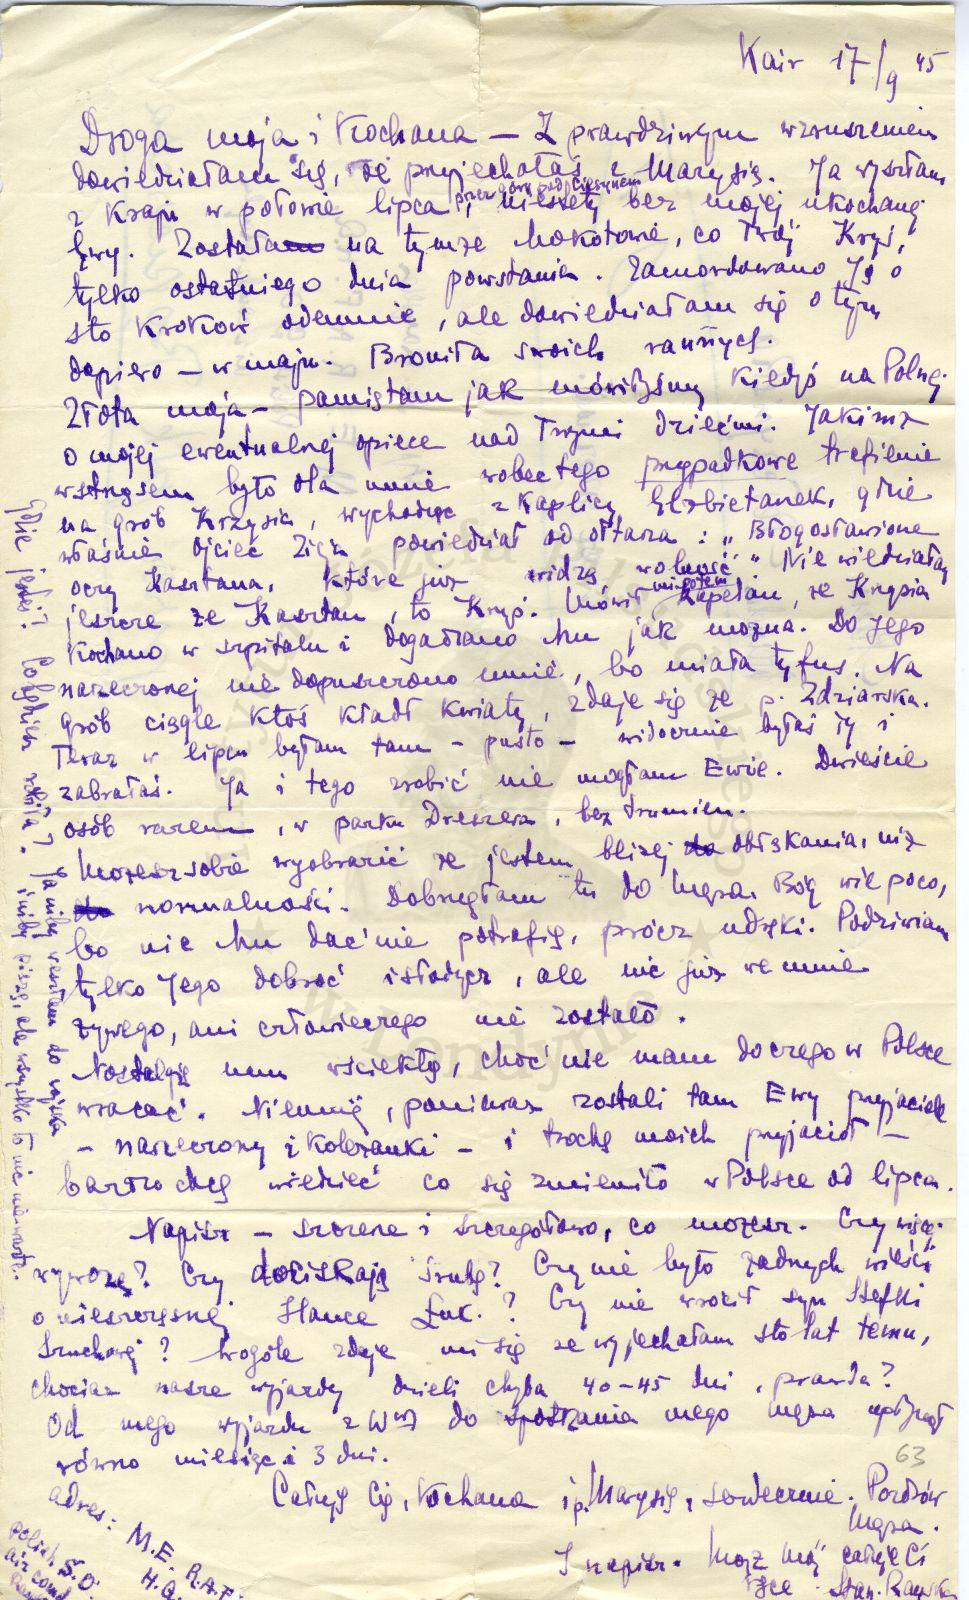 Kair 17/9 45
Droga moja i Kochana — Z prawdziwym wzruszeniem
dowiedziałam się, że przyjechałaś z Marysią. Ja wyszłam
z Kraju w połowie lipca, przez górę pod Cieszynem niestety bez mojej ukochanej
Ewy. Została na tymże Mokotowie, co Twój Kryś,
tylko ostatniego dnia powstania. Zamordowano Ją o
sto kroków odemnie, ale dowiedziałam się o tym
dopiero — w maju. Broniła swoich rannych.
Złota moja — pamiętam jak mówiłyśmy kiedyś na Polnej
o mojej ewentualnej opiece nad Twymi dziećmi. Jakimż
wstrząsem było dla mnie wobec tego przypadkowe trafienie
na grób Krzysia, wychodząc z Kaplicy Elżbietanek, gdzie
właśnie Ojciec powiedział od ołtarza: „Błogosławione
oczy Kasztana, które już widzą wolność" Nie wiedziałam
jeszcze że Kasztan, to Kryś. Mówił mi potem Kapelan, że Krysia
Kochano w szpitalu i dogadzano Mu jak można. Do Jego
narzeczonej nie dopuszczono mnie, bo miała tyfus. Na
grób ciągle ktoś kładł kwiaty, zdaje się że p. Zdziarska.
Teraz w lipcu byłam tam — pusto — widocznie byłaś Ty i
zabrałaś. Ja i tego zrobić nie mogłam Ewie. Dwieście
osób razem, w parku Dreszera, bez trumien.
Możesz sobie wyobrazić że jestem bliżej obłąkania, niż
normalności. Dobrnęłam tu do Męża. Bóg wie poco,
bo nic Mu dać nie potrafię, prócz udręki. Podziwiam
tylko Jego dobroć i słodycz, ale nic już we mnie
żywego, ani człowieczego nie zostało.
Nostalgię mam wściekłą, choć nie mam do czego w Polsce
wracać. Niemniej, ponieważ zostali tam Ewy przyjaciele
— narzeczony i koleżanki — i trochę moich przyjaciół —
bardzo chcę wiedzieć co się zmieniło w Polsce od lipca.
Napisz — szczerze i szczegółowo, co możesz. Czy więcej
wywożą? Czy dociskają śrubę? Czy nie było żadnych wieści
o nieszczęsnej Hance Łuk.? Czy nie wrócił syn Stefki
? Wogóle zdaje mi się że wyjechałam sto lat temu,
chociaż nasze wyjazdy dzieli chyba 40–45 dni, prawda?
Od mego wyjazdu z Wwy do spotkania mego męża upłynął
równo miesiąc i 3 dni.
63
Całuję Cię, Kochana i p. Marysię, serdecznie. Pozdrów
Męża.
I napisz. Mąż mój całuje Ci
ręce. Stan.
adres: M.E. R.A.F.
H.Q.
Polish S.O.
air comd
Gdzie jesteś? Co będziesz robiła? Ja niby wzięłam do wojska
i niby piszę, ale wszystko to nic nie warte.